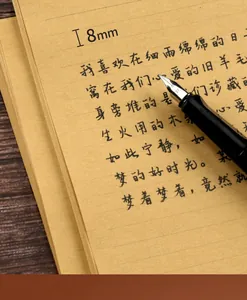 8mm
我喜欢在细雨绵绵的日
窝在我们心爱的旧羊毛
身旁堆的是我们珍藏的
生火用的木
心爱
如此宁静，如
梦的好时光。
梦着梦着，竟然就